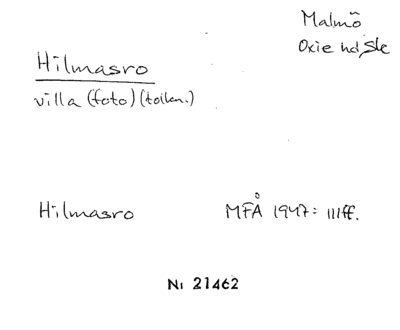 Malmö
Oxie hd, Sk
Hilmasro
villa (foto) (tolkn.)
Hilmasro MFÅ 1947: 111ff.
Nr 21462